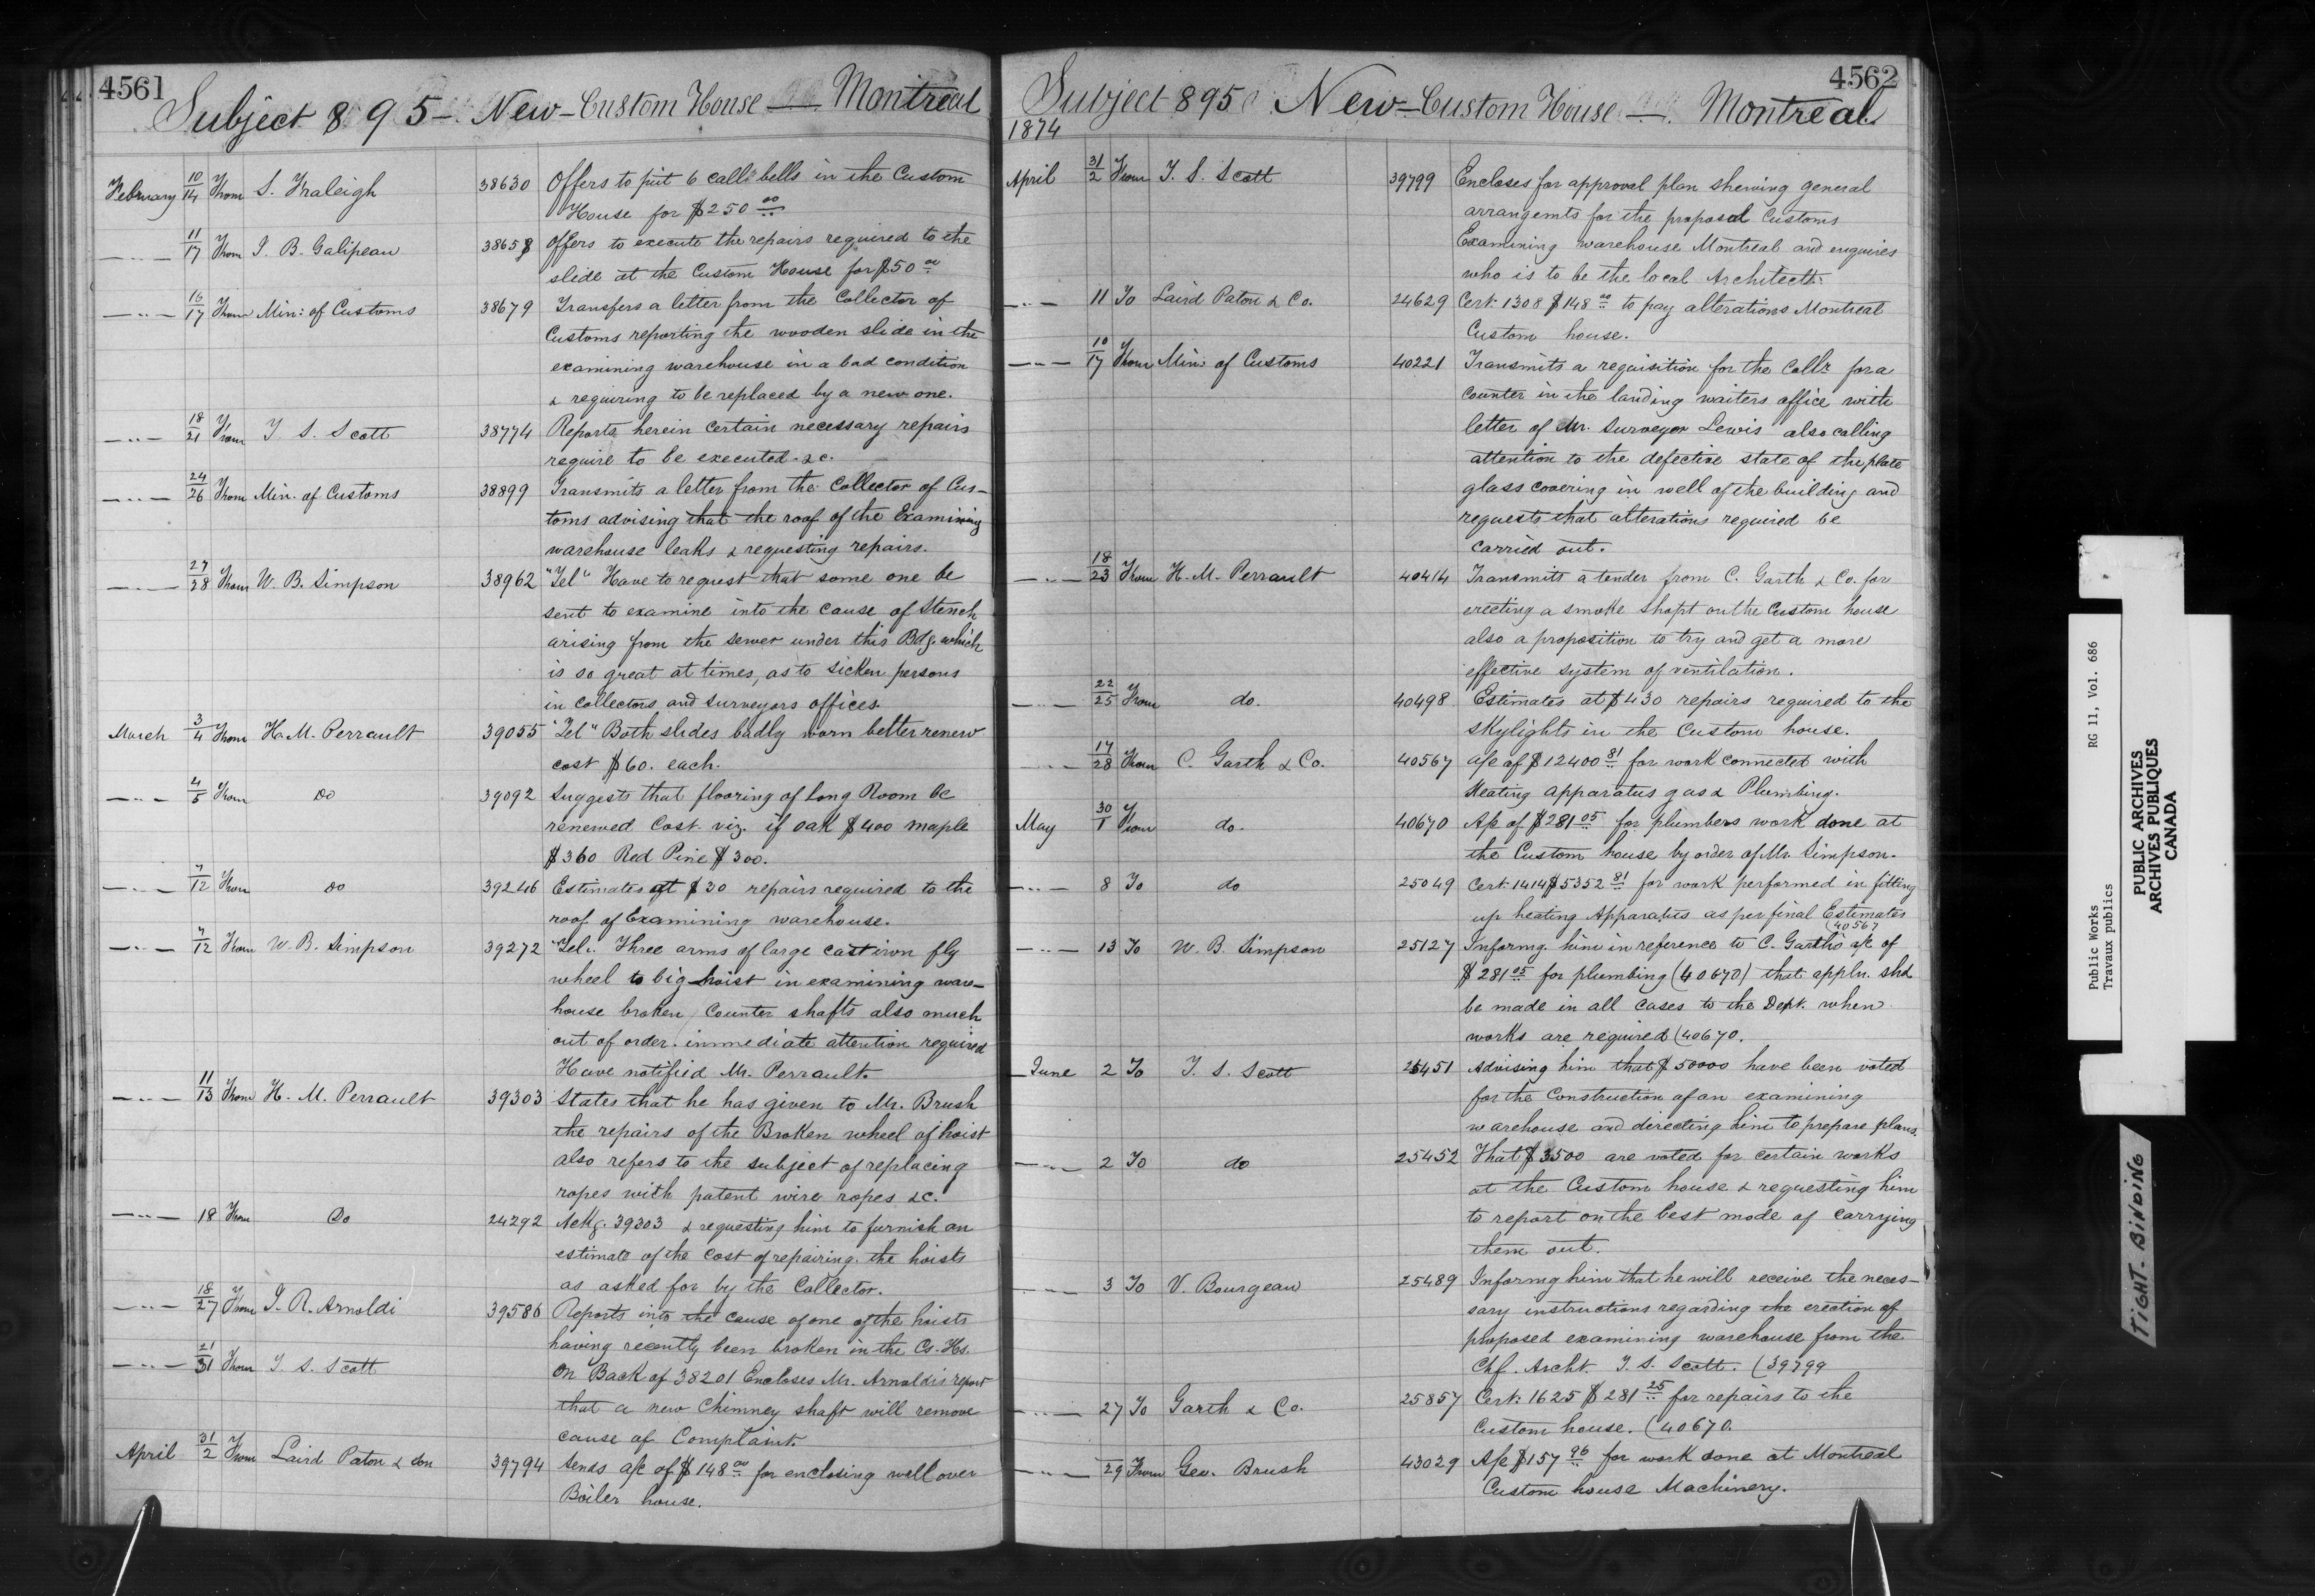 4561
Subject 895 - New - Custom House - Montreal
February 10/14 From S. Fraleigh 38630 Offers to put 6 call bells in the Custom
House for $250 00
— " — 11/17 From J. B. Galipeau 38658 Offers to execute the repairs required to the
slide at the Custom House for $50 00
— " — 16/17 From Min: of Customs 38679 Transfers a letter from the Collector of
Customs reporting the wooden slide in the
examining warehouse in a bad condition
& requiring to be replaced by a new one.
— " — 18/21 From T. S. Scott 38774 Reports herein certain necessary repairs
require to be executed. &c.
— " — 24/26 From Min. of Customs 38899 Transmits a letter from the Collector of Cus-
toms advising that the roof of the Examining
warehouse leaks & requesting repairs.
— " — 27/28 From W. B. Simpson 38962 "Tel" Have to request that some one be
sent to examine into the cause of Stench
arising from the sewer under this Bdg. which
is so great at times, as to sicken persons
in collectors and surveyors offices.
March 3/4 From H. M. Perrault 39055 "Tel" Both slides badly worn better renew
cost $60. each.
— " — 4/5 From Do 39092 Suggests that flooring of Long Room be
renewed Cost. viz. if oak $400 maple
$360 Red Pine $300.
— " — 7/12 From do 39246 Estimates at $30 repairs required to the
roof of Examining warehouse.
— " — 7/12 From W. B. Simpson 39272 "Tel. Three arms of large cast iron fly
wheel to big hoist in examining ware-
house broken, Counter shafts also much
out of order. immediate attention required
Have notified Mr. Perrault.
— " — 11/13 From H. M. Perrault 39303 States that he has given to Mr. Brush
the repairs of the Broken wheel of hoist
also refers to the subject of replacing
ropes with patent wire ropes &c.
— " — 18 From Do 24292 Ackg. 39303 & requesting him to furnish an
estimate of the cost of repairing the hoists
as asked for by the Collector.
— " — 18/27 From J. R. Arnoldi 39586 Reports into the cause of one of the hoists
having recently been broken in the Cs. Hs.
— " — 21/31 From T. S. Scott On Back of 38201 Encloses Mr. Arnoldis report
that a new Chimney shaft will remove
cause of Complaint.
April 31/2 From Laird Paton & Son 39794 Sends a/c of $148 00 for enclosing well over
Boiler house.
4562
Subject 895 New - Custom House - Montreal.
1874
April 31/2 From T. S. Scott 39799 Encloses for approval plan shewing general
arrangemts for the proposed Customs
Examining warehouse Montreal and enquires
who is to be the local Architect.
— " — 11 To Laird Paton & Co. 24629 Cert. 1308 $148 00 to pay alterations Montreal
Custom house.
— " — 10/17 From Min: of Customs 40221 Transmits a requisition for the Collr. for a
counter in the landing waiters office with
letter of Mr. Surveyor Lewis also calling
attention to the defective state of the plate
glass covering in well of the building and
requests that alterations required be
carried out.
— " — 18/23 From H. M. Perrault 40414 Transmits a tender from C. Garth & Co. for
erecting a smoke shaft on the Custom house
also a proposition to try and get a more
effective system of ventilation.
— " — 22/25 From do. 40498 Estimates at $430 repairs required to the
skylights in the Custom house.
— " — 17/28 From C. Garth & Co. 40567 a/c of $12400 81 for work connected with
Heating apparatus gas & Plumbing.
May 30/1 From do. 40670 A/c of $281 05 for plumbers work done at
the Custom house by order of Mr. Simpson.
— " — 8 To do 25049 Cert. 1414 $5352 81 for work performed in fitting
up heating Apparatus as per final Estimates
(40567
— " — 13 To W. B. Simpson 25127 Informg. him in reference to C. Garth's a/c of
$281 05 for plumbing (40670) that appln. shd
be made in all cases to the Dept. when
works are required (40670.
June 2 To T. S. Scott 25451 Advising him that $50000 have been voted
for the Construction of an examining
warehouse and directing him to prepare plans.
— " — 2 To do 25452 That $3500 are voted for certain works
at the Custom house & requesting him
to report on the best mode of carrying
them out.
— " — 3 To V. Bourgeau 25489 Informg him that he will receive the neces-
sary instructions regarding the erection of
proposed examining warehouse from the
Chf. Archt. T. S. Scott. (39799
— " — 27 To Garth & Co. 25857 Cert: 1625 $281 25 for repairs to the
Custom house. (40670.
— " — 29 From Geo. Brush 43029 A/c $157 96 for work done at Montreal
Custom house Machinery.
Public Works RG 11, Vol. 686
Travaux publics
PUBLIC ARCHIVES
ARCHIVES PUBLIQUES
CANADA
TIGHT-BINDING